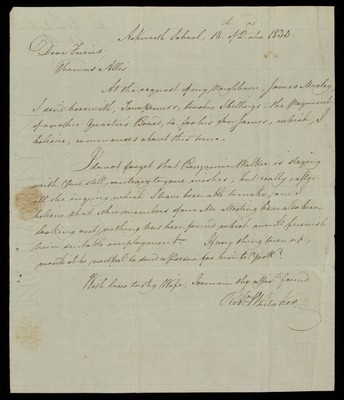 Ackworth School, 18 of 2 mo 1833
Dear Friend
Thomas Allis
At the request of my Neighbour, James Moxley
I send herewith, Pounds, twelve Shillings - the Payment
of another Quarter's Board, for his Son James, which, I
believe, commences about this time.
I do not forget that Benjamin Walker is staying
with you still, contrary to your wishes; but really after
all the enquiry which I have been able to make, and I
believe that the members of our Mo. Meeting have also been
looking out, nothing has been found which would furnish
him suitable employment. If any thing turn out
would it be needful to send a Person for him to York?
With love to thy Wife, I remain thy affect. friend
Robt Whitaker